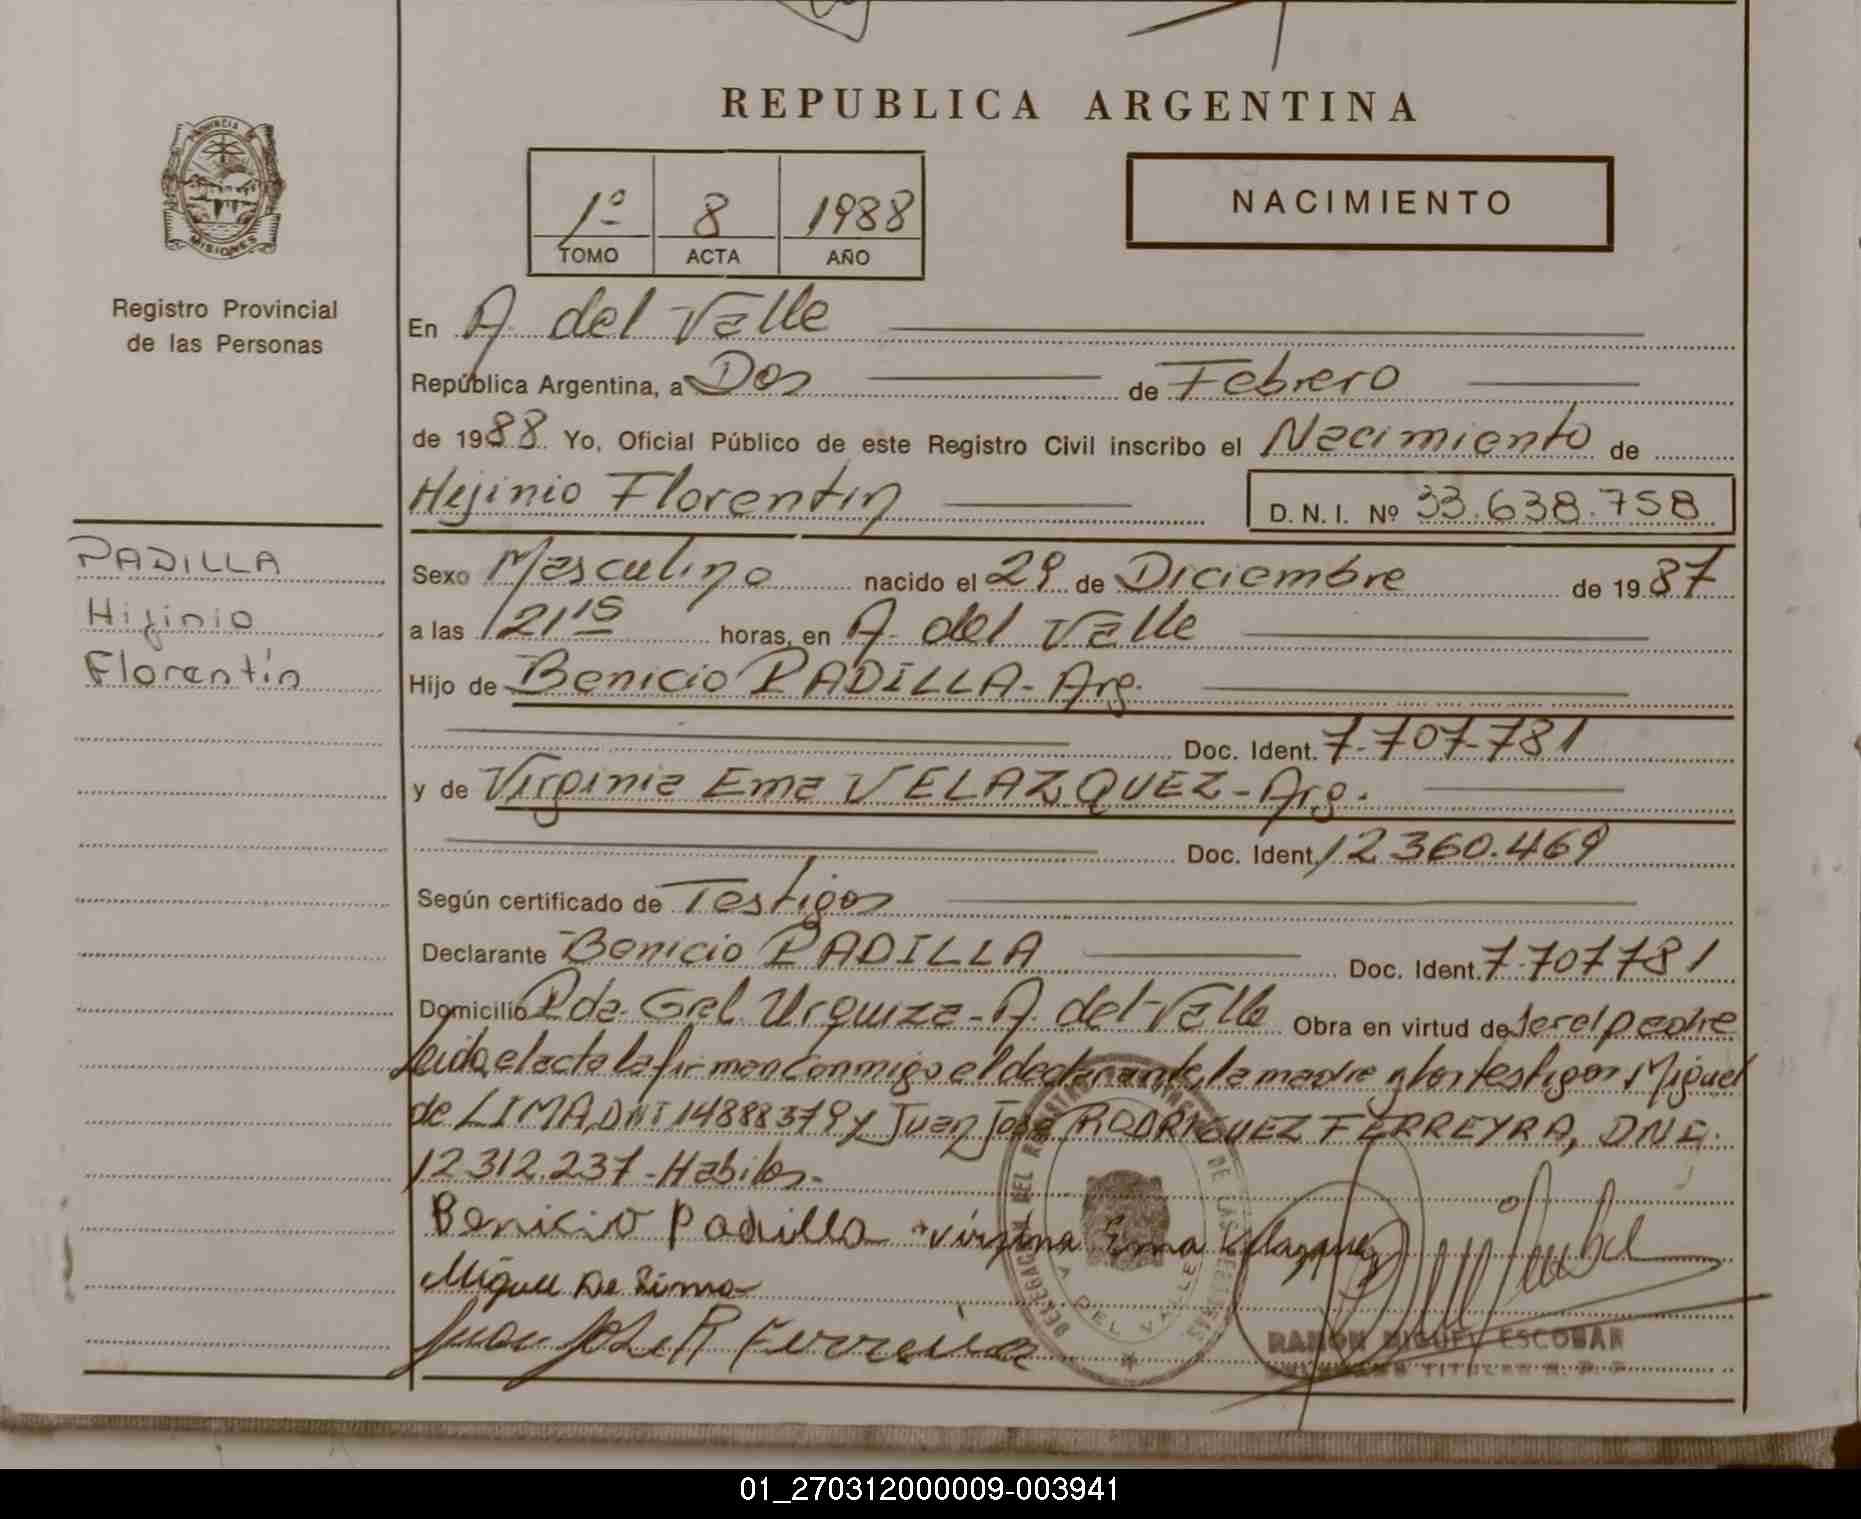 REPUBLICA ARGENTINA
PROVINCIA
MISIONES
Registro Provincial
de las Personas
1º 8 1988
TOMO ACTA AÑO
NACIMIENTO
En A. del Valle
República Argentina, a Dos de Febrero
de 1988. Yo, Oficial Público de este Registro Civil inscribo el Nacimiento de
Hijinio Florentin D. N. I. Nº 33.638.758
PADILLA
Hijinio
Florentín
Sexo Masculino nacido el 29 de Diciembre de 1987
a las 21,15 horas, en A. del Valle
Hijo de Benicio PADILLA- Arg.
Doc. Ident. 7.707.781
y de Virginia Ema VELAZQUEZ-Arg.
Doc. Ident. 12.360.469
Según certificado de Testigos
Declarante Benicio PADILLA Doc. Ident. 7.707.781
Domicilio Pda. Gral. Urquiza- A. del Valle Obra en virtud de ser el padre
Leida el acta la firman conmigo el declarante, la madre y los testigos Miguel
de LIMA, DNI 14888379 y Juan José RODRIGUEZ FERREYRA, DNI.
12.312.237-Habiles.-
Benicio Padilla Virginia Ema Velazquez
Miguel De Lima
Juan José R Ferreira
DELEGACION DEL REGISTRO PROVINCIAL DE LAS PERSONAS
A. DEL VALLE
RAMON MIGUEL ESCOBAR
01_270312000009-003941